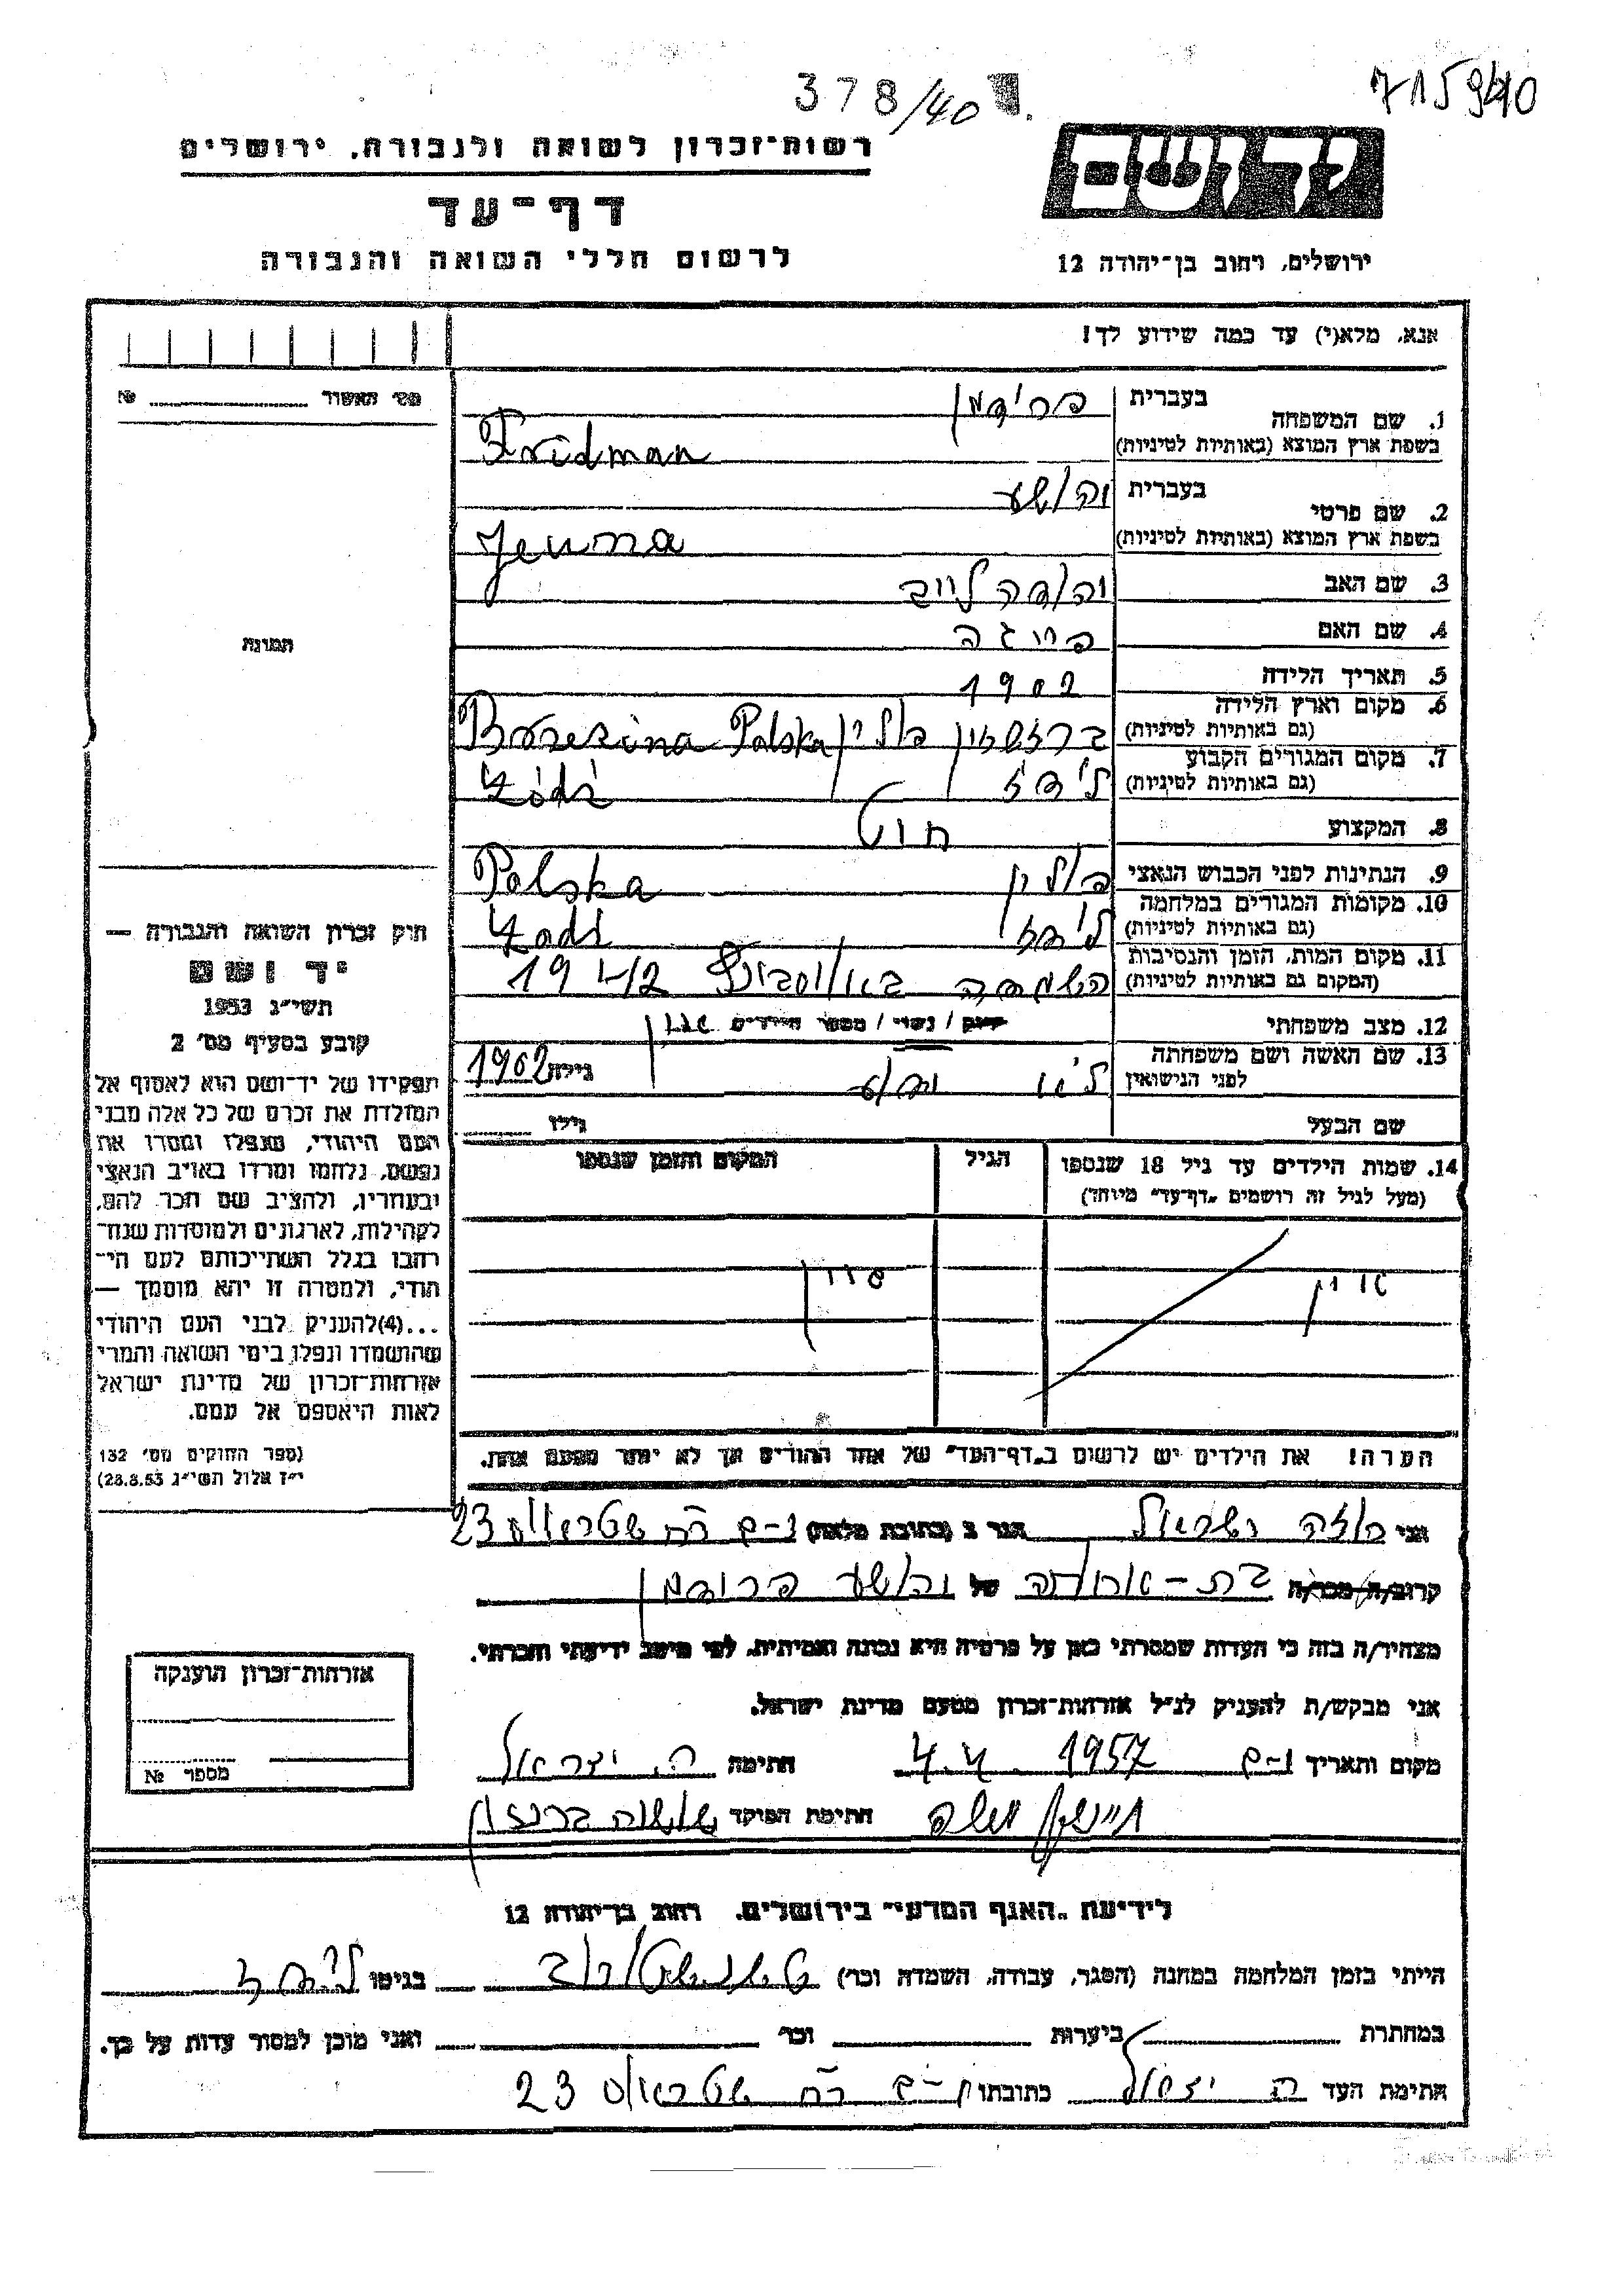 378/40
715940
יד ושם
רשות־זכרון לשואה ולגבורה, ירושלים
דף־עד
לרשום חללי השואה והגבורה
ירושלים, רחוב בן־יהודה 12
אנא, מלא(י) עד כמה שידוע לך!
מס' האשור № 
1. שם המשפחה
בעברית פרידמן
בשפת ארץ המוצא (באותיות לטיניות) Fridman
2. שם פרטי
בעברית יהושע
בשפת ארץ המוצא (באותיות לטיניות)
3. שם האב יהודה לייב
4. שם האם פייגה
5. תאריך הלידה 1902
6. מקום וארץ הלידה
(גם באותיות לטיניות) פולין Brzezina Polska
7. מקום המגורים הקבוע
(גם באותיות לטיניות) לודז Łódź
8. המקצוע חיט
9. הנתינות לפני הכבוש הנאצי פולין Polska
10. מקומות המגורים במלחמה
(גם באותיות לטיניות) לודז Łodź
11. מקום המות, הזמן והנסיבות
(המקום גם באותיות לטיניות) השמדה 1942
12. מצב משפחתי רווק / נשוי / מספר הילדים אין
13. שם האשה ושם משפחתה
לפני הנישואין גילה 1902
שם הבעל גילו
14. שמות הילדים עד גיל 18 שנספו
(מעל לגיל זה רושמים „דף־עד" מיוחד)
הגיל
המקום והזמן שנספו
אין
אין
הערה! את הילדים יש לרשום ב„דף־העד" של אחד ההורים אך לא יותר מפעם אחת.
תמונה
חוק זכרון השואה והגבורה —
יד ושם
תשי"ג 1953
קובע בסעיף מס' 2
תפקידו של יד־ושם הוא לאסוף אל
המולדת את זכרם של כל אלה מבני
העם היהודי, שנפלו ומסרו את
נפשם, נלחמו ומרדו באויב הנאצי
ובעוזריו, ולהציב שם וזכר להם,
לקהילות, לארגונים ולמוסדות שנח־
רבו בגלל השתייכותם לעם הי־
הודי, ולמטרה זו יהא מוסמך —
...(4) להעניק לבני העם היהודי
שהושמדו ונפלו בימי השואה והמרי
אזרחות־זכרון של מדינת ישראל
לאות היאספם אל עמם.
(ספר החוקים מס' 132
י"ז אלול תשי"ג 28.8.53)
אני רוזה ישראל הגר ב (כתובת מלאה) י-ם רח שטראוס 23
קרוב/ה מכר/ה של יהושע פרידמן
מצהיר/ה בזה כי העדות שמסרתי כאן על פרטיה היא נכונה ואמיתית, לפי מיטב ידיעתי והכרתי.
אני מבקש/ת להעניק לנ"ל אזרחות־זכרון מטעם מדינת ישראל.
מקום ותאריך י-ם 4.4.1957 חתימה ר. ישראל
חתימת הפוקד
אזרחות־זכרון הוענקה
מספר №
לידיעת „האגף המדעי" בירושלים, רחוב בן־יהודה 12
הייתי בזמן המלחמה במחנה (הסגר, עבודה, השמדה וכו') בגיטו לודז
במחתרת ביערות וכו' ואני מוכן למסור עדות על כך.
חתימת העד ר ישראל כתובתו י-ם רח שטראוס 23